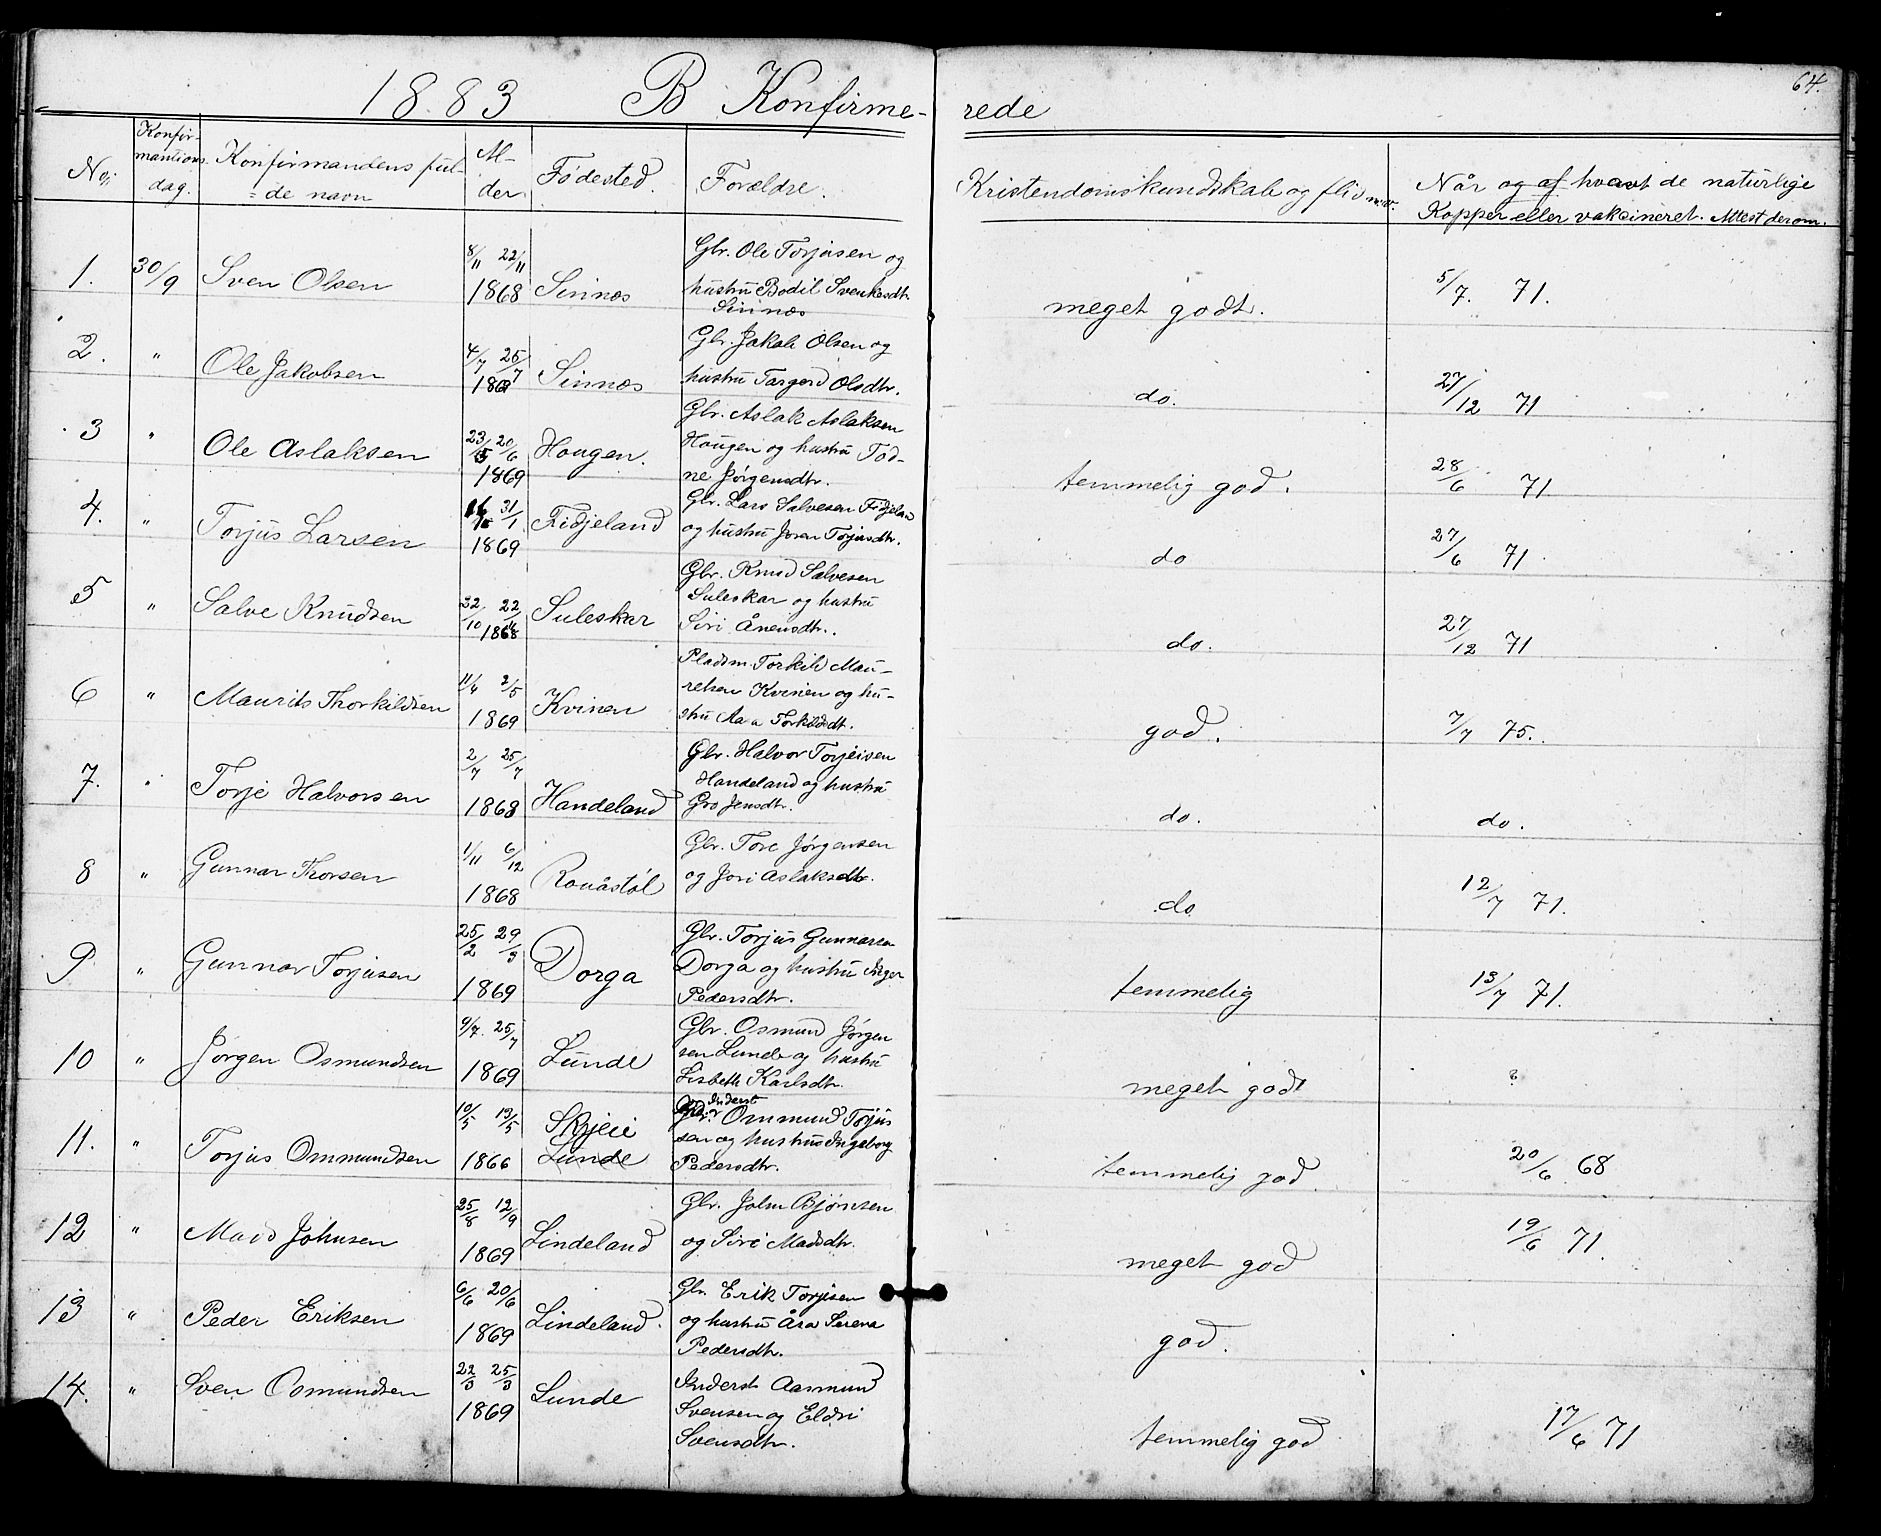 64.
1883 B Konfirme-rede
No. Konfir-mantions dag. Konfirmandens ful-de navn Al-der Fødested. Forældre. Kristendomskundskab og flid m.v. Når og af hvem de naturlige
Kopper eller vaksineret. Attest derom.
1. 30/9 Sven Olsen 8/11 22/11 1868 Sinnes Gbr. Ole Torjusen og
hustru Bodil Svenkesdtr.
Sinnes
meget godt. 5/7. 71.
2. " Ole Jakobsen 4/7 25/7 Sinnes Gbr. Jakob Olsen og
hustru Targerd Olsdtr.
do. 27/12 71
3 " Ole Aslaksen 23/5 20/6 1869 Hougen. Gbr. Aslak Aslaksen
Hougen og hustru Tod-
ne Jørgensdtr.
temmelig god. 28/6 71
4. " Torjus Larsen 31/1 1869 Fidjeland Gbr. Lars Salvesen Fidjeland
og hustru Joren Torjusdtr.
do 27/6 71
5 " Salve Knudsen 22/10 22/11 1868 Suleskar Gbr. Knud Salvesen
Suleskar og hustru
Siri Ånensdtr.
do. 27/12 71
6 " Maurits Thorkildsen 11/4 2/5 1869 Kvinen Pladsm. Torkild Mau-
Kvinen og hu-
stru
god. 7/7 75.
7. " Torje Halvorsen 2/7 25/7 1868 Handeland Gbr. Halvor Torjeisen
Handeland og hustru
Gro Jensdtr.
do. do.
8 " Gunnar Thorsen 1/11 6/12 1868 Rouåstøl Gbr. Tore Jørgensen
og Jori Aslaksdtr.
do 12/7 71.
9 " Gunnar Torjusen 25/2 29/3 1869 Dorga Gbr. Torjus Gunnarsen
Dorga og hustru Inger
Pedersdtr.
temmelig 13/7 71.
10 " Jørgen Osmundsen 9/7. 25/7 1869 Lunde Gbr. Osmund Jørgen
sen Lunde og hustru
Lisbeth Karlsdtr.
meget godt ?
11. " Torjus Ommundsen 10/5 13/5 1866 Skjeie
Lunde Inderst
Ommund Torjus
sen og hustru Ingeborg
Pedersdtr.
temmelig god. 20/6 68
12 " Mads Johnsen 25/8 12/9 1869 Lindeland Gbr. John Bjørnsen
og Siri Madsdtr.
meget god 19/6 71.
13 " Peder Eriksen 6/6 20/6 1869 Lindeland. Gbr. Erik Torjusen
og hustru Åsa Serena
Pedersdtr.
god.
14. " Sven Osmundsen 22/3 25/3 1869 Lunde Inderst Aasmund
Svensen og Eldri
Svensdtr.
temmelig god 17/6 71